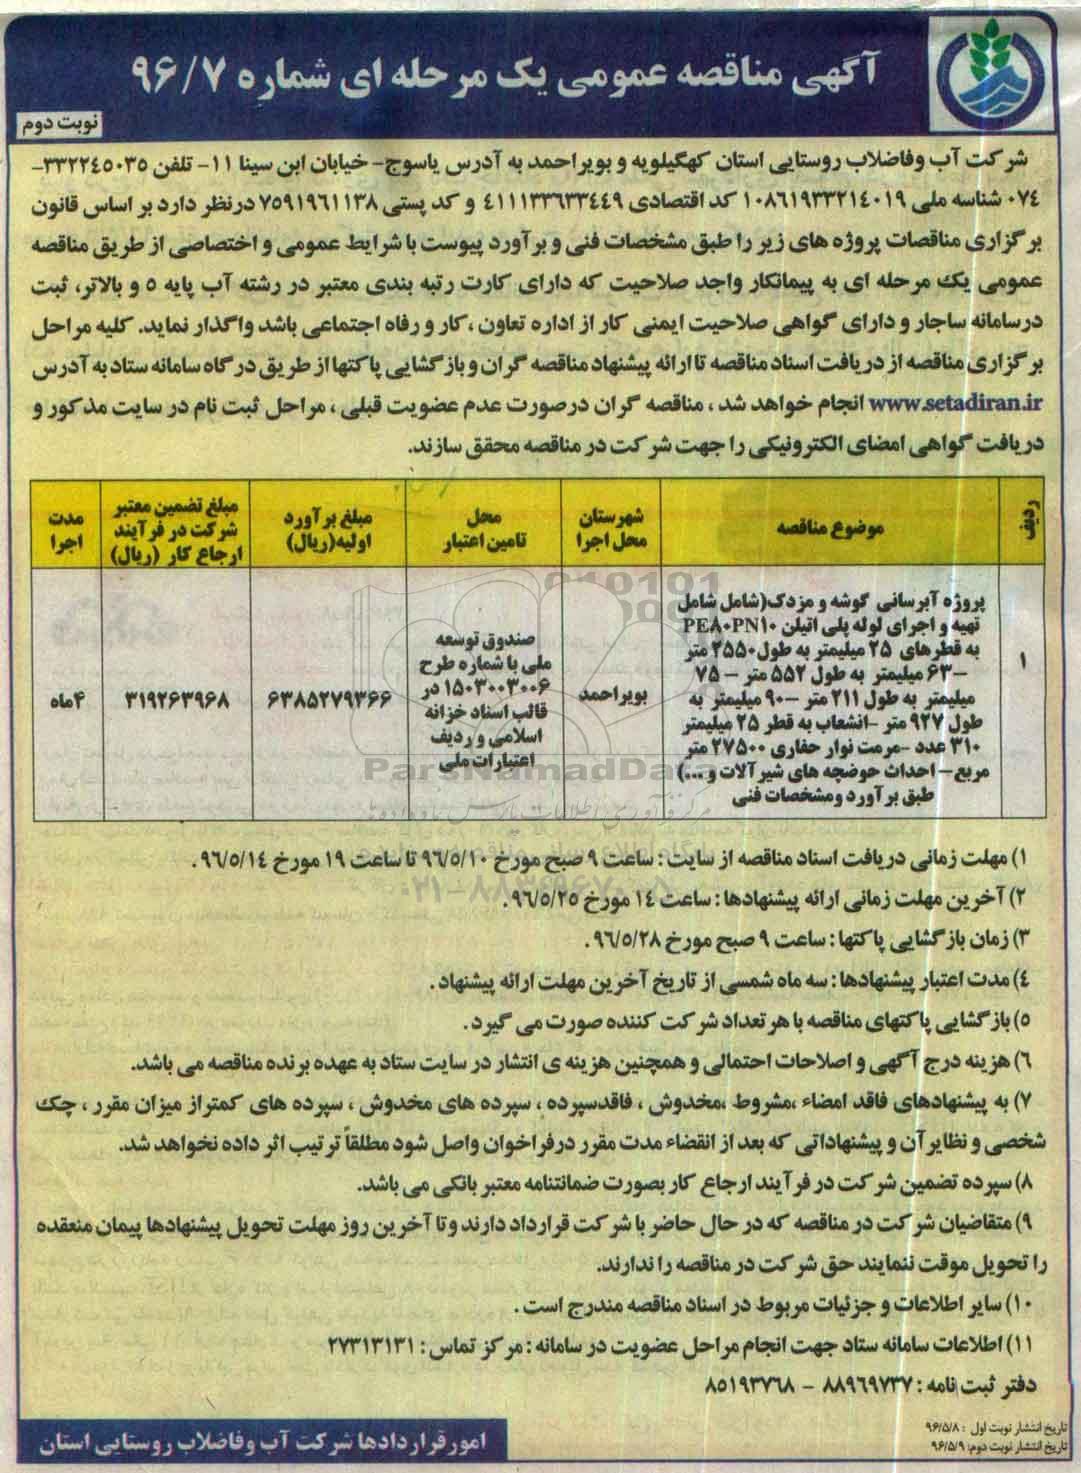 آگهی مناقصه عمومی یک مرحله ای شماره ۹۶/۷
نوبت دوم
شرکت آب وفاضلاب روستایی استان کهگیلویه و بویراحمد به آدرس یاسوج- خیابان ابن سینا ۱۱- تلفن ۳۳۲۲۴۵۰۳۵-
۰۷۴ شناسه ملی ۱۰۸۶۱۹۳۳۲۱۴۰۱۹ کد اقتصادی ۴۱۱۱۳۳۶۳۳۴۴۹ و کد پستی ۷۵۹۱۹۶۱۱۳۸ درنظر دارد بر اساس قانون
برگزاری مناقصات پروژه های زیر را طبق مشخصات فنی و برآورد پیوست با شرایط عمومی و اختصاصی از طریق مناقصه
عمومی یک مرحله ای به پیمانکار واجد صلاحیت که دارای کارت رتبه بندی معتبر در رشته آب پایه ۵ و بالاتر، ثبت
درسامانه ساجار و دارای گواهی صلاحیت ایمنی کار از اداره تعاون ،کار و رفاه اجتماعی باشد واگذار نماید. کلیه مراحل
برگزاری مناقصه از دریافت اسناد مناقصه تا ارائه پیشنهاد مناقصه گران و بازگشایی پاکتها از طریق درگاه سامانه ستاد به آدرس
www.setadiran.ir انجام خواهد شد ، مناقصه گران درصورت عدم عضویت قبلی ، مراحل ثبت نام در سایت مذکور و
دریافت گواهی امضای الکترونیکی را جهت شرکت در مناقصه محقق سازند.
ردیف
موضوع مناقصه
شهرستان
محل اجرا
محل
تامین اعتبار
مبلغ برآورد
اولیه(ریال)
مبلغ تضمین معتبر
شرکت در فرآیند
ارجاع کار (ریال)
مدت
اجرا
۱
پروژه آبرسانی گوشه و مزدک(شامل شامل
تهیه و اجرای لوله پلی اتیلن PE۸۰PN۱۰
به قطرهای ۲۵ میلیمتر به طول۲۵۵۰ متر
-۶۳ میلیمتر به طول ۵۵۲ متر - ۷۵
میلیمتر به طول ۲۱۱ متر -۹۰ میلیمتر به
طول ۹۲۷ متر -انشعاب به قطر ۲۵ میلیمتر
۳۱۰ عدد -مرمت نوار حفاری ۲۷۵۰۰ متر
مربع- احداث حوضچه های شیرآلات و ...)
طبق برآورد ومشخصات فنی
بویراحمد
صندوق توسعه
ملی با شماره طرح
۱۵۰۳۰۰۳۰۰۶ در
قالب اسناد خزانه
اسلامی و ردیف
اعتبارات ملی
۶۳۸۵۲۷۹۳۶۶
۳۱۹۲۶۳۹۶۸
۴ماه
ParsNamadData
۱) مهلت زمانی دریافت اسناد مناقصه از سایت : ساعت ۹ صبح مورخ ۹۶/۵/۱۰ تا ساعت ۱۹ مورخ ۹۶/۵/۱۴.
۲) آخرین مهلت زمانی ارائه پیشنهادها : ساعت ۱۴ مورخ ۹۶/۵/۲۵ .
۳) زمان بازگشایی پاکتها : ساعت ۹ صبح مورخ ۹۶/۵/۲۸ .
۴) مدت اعتبار پیشنهادها : سه ماه شمسی از تاریخ آخرین مهلت ارائه پیشنهاد .
۵) بازگشایی پاکتهای مناقصه با هر تعداد شرکت کننده صورت می گیرد .
۶) هزینه درج آگهی و اصلاحات احتمالی و همچنین هزینه ی انتشار در سایت ستاد به عهده برنده مناقصه می باشد.
۷) به پیشنهادهای فاقد امضاء ،مشروط ،مخدوش ، فاقدسپرده ، سپرده های مخدوش ، سپرده های کمتراز میزان مقرر ، چک
شخصی و نظایر آن و پیشنهاداتی که بعد از انقضاء مدت مقرر درفراخوان واصل شود مطلقاً ترتیب اثر داده نخواهد شد.
۸) سپرده تضمین شرکت در فرآیند ارجاع کار بصورت ضمانتنامه معتبر بانکی می باشد.
۹) متقاضیان شرکت در مناقصه که در حال حاضر با شرکت قرارداد دارند وتا آخرین روز مهلت تحویل پیشنهادها پیمان منعقده
را تحویل موقت ننمایند حق شرکت در مناقصه را ندارند.
۱۰) سایر اطلاعات و جزئیات مربوط در اسناد مناقصه مندرج است .
۱۱) اطلاعات سامانه ستاد جهت انجام مراحل عضویت در سامانه : مرکز تماس : ۲۷۳۱۳۱۳۱
دفتر ثبت نامه : ۸۸۹۶۹۷۳۷ - ۸۵۱۹۳۷۶۸
تاریخ انتشار نوبت اول : ۹۶/۵/۸
تاریخ انتشار نوبت دوم: ۹۶/۵/۹
امور قراردادها شرکت آب وفاضلاب روستایی استان